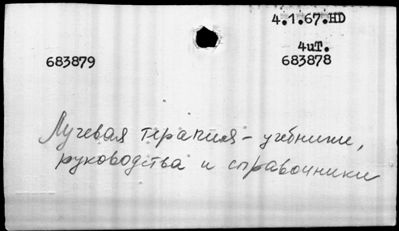 4.1.67.HD
4иT.
683879 683878
Лучевая терапия – учебники,
руководства и справочники